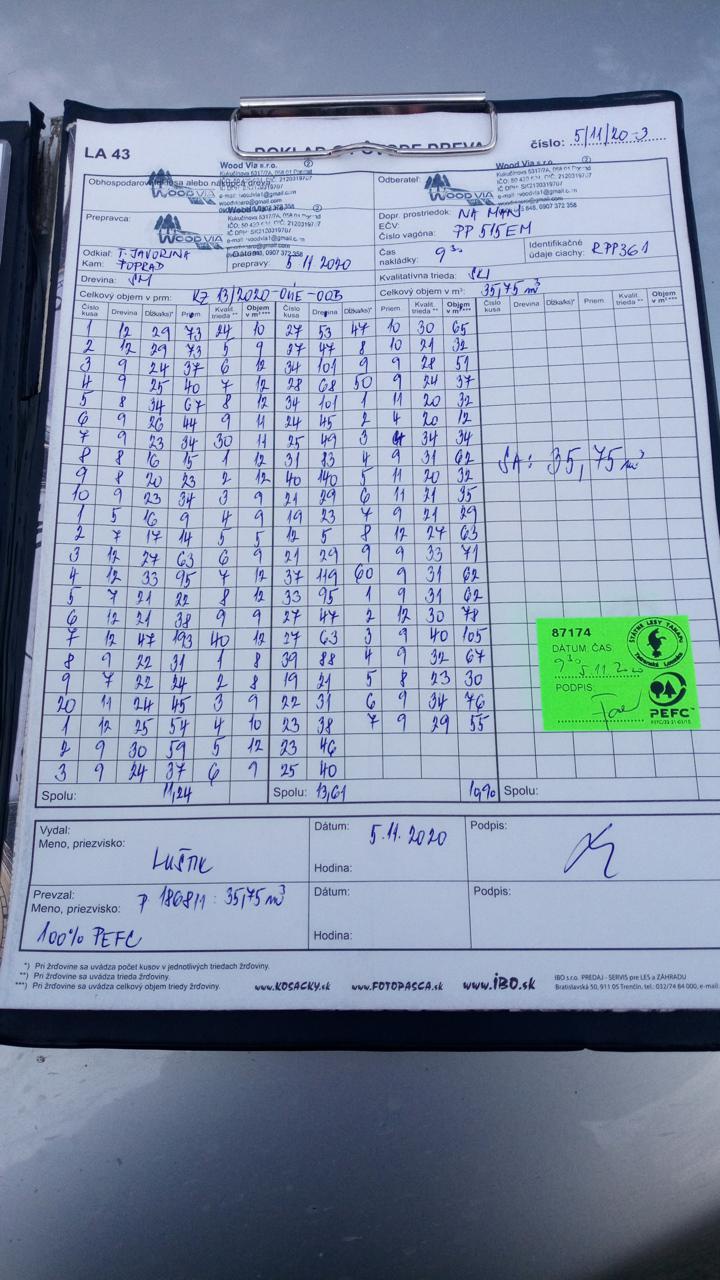 LA 43
číslo: 5/11/20-3
Wood Via s.r.o.
Odberateľ:
WOOD VIA
Prepravca:
Dopr. prostriedok: NA MAN
EČV: PP 515EM
Číslo vagóna:
Odkiaľ: T. JAVORINA
Kam: POPRAD
prepravy: 5 11 2020
Čas nakládky: 9 30
Identifikačné údaje ciachy: RPP361
Drevina: SM
Kvalitatívna trieda:
Celkový objem v prm: KZ 13/2020-OUE-OOB
Celkový objem v m³: 35,75 m³
Číslo kusa Drevina Dĺžka/ks)* Priem. Kvalit. trieda ** Objem v m³ *** Číslo kusa Drevina Dĺžka/ks)* Priem. Kvalit. trieda ** Objem v m³ *** Číslo kusa Drevina Dĺžka/ks)* Priem Kvalit. trieda ** Objem v m³ ***
1 12 29 73 24 10 27 53 47 10 30 65
2 12 29 73 5 9 27 47 8 10 21 32
3 9 24 37 6 12 34 101 9 9 28 51
4 9 25 40 7 12 28 68 50 9 24 37
5 8 34 67 8 12 34 101 1 11 20 32
6 9 26 44 9 11 24 45 2 4 20 12
7 9 23 34 30 11 25 49 3 4 34 34
8 8 16 15 1 12 31 83 4 9 31 62
9 8 20 23 2 12 40 140 5 11 20 32
10 9 23 34 3 9 21 29 6 11 21 35
1 5 16 9 4 9 19 23 7 9 21 29
2 7 17 14 5 5 12 5 8 12 27 63
3 12 27 63 6 9 21 29 9 9 33 71
4 12 33 95 7 12 37 119 60 9 31 62
5 7 21 22 8 12 33 95 1 9 31 62
6 12 21 38 9 9 27 47 2 12 30 78
7 12 47 193 40 12 27 63 3 9 40 105
8 9 22 31 1 8 39 88 4 9 32 67
9 7 22 24 2 8 19 21 5 8 23 30
20 11 24 45 3 9 22 31 6 9 34 76
1 12 25 54 4 10 23 38 7 9 29 55
2 9 30 59 5 12 23 46
3 9 24 37 6 9 25 40
SA: 35,75 m³
87174
DÁTUM, ČAS
9 30 5.11.2020
PODPIS:
ŠTÁTNE LESY TANAPU
Tatranská Lomnica
PEFC
Spolu: 11,24 Spolu: 13,61 10,90 Spolu:
Vydal:
Meno, priezvisko: LUŠTIK
Dátum: 5.11.2020
Hodina:
Podpis:
Prevzal:
Meno, priezvisko: P 186811 : 35,75 m³
100% PEFC
Dátum:
Hodina:
Podpis:
*) Pri žrďovine sa uvádza počet kusov v jednotlivých triedach žrďoviny.
**) Pri žrďovine sa uvádza trieda žrďoviny.
***) Pri žrďovine sa uvádza celkový objem triedy žrďoviny.
www.KOSACKY.sk www.FOTOPASCA.sk www.iBO.sk
IBO s.r.o. PREDAJ - SERVIS pre LES a ZÁHRADU
Bratislavská 50, 911 05 Trenčín, tel.: 032/74 84 000, e-mail: